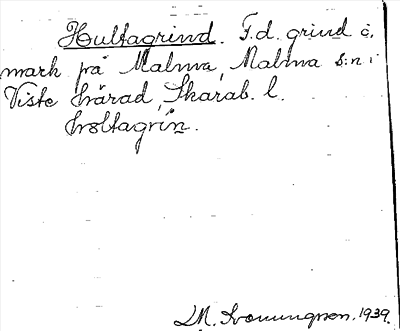 Hultagrind. F.d. grind i
mark på Malma, Malma s:n i
Viste härad, Skarab. l.
holtagrin.
M. 1939.